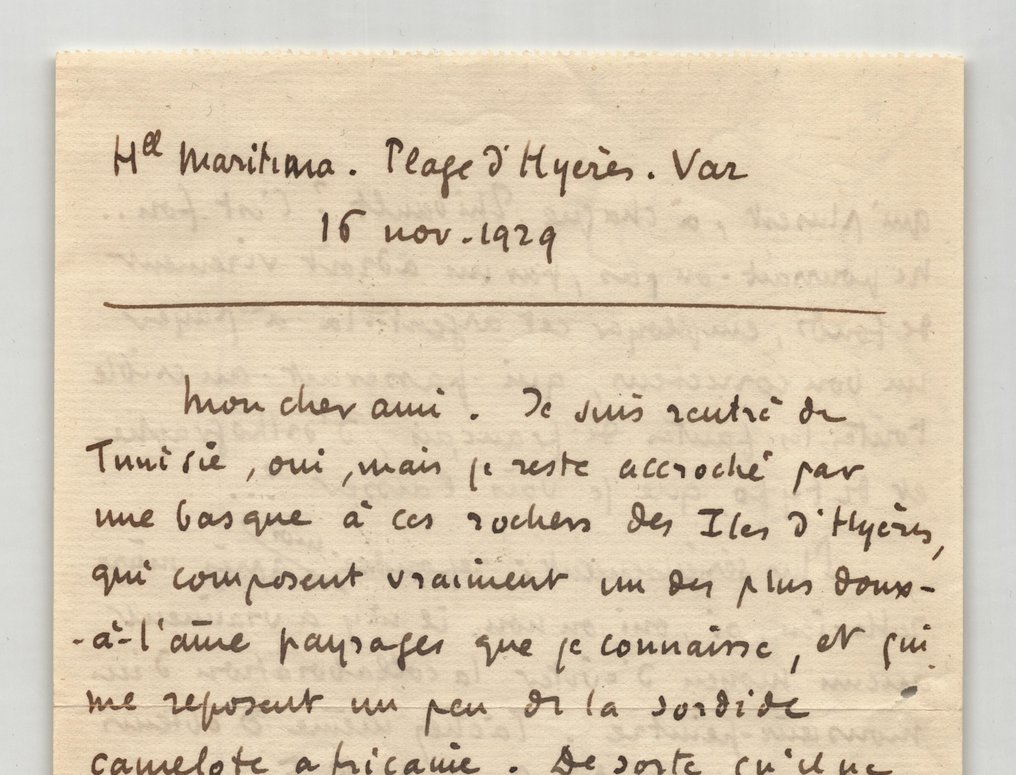 Hel Maritima. Plage d'Hyères. Var
16 nov. 1929
Mon cher ami. Je suis rentré de
Tunisie, oui, mais je reste accroché par
une basque à ces rochers des Iles d'Hyères,
qui composent vraiment un des plus doux-
-à-l'âme paysages que je connaisse, et qui
me reposent un peu de la sordide
camelote africaine. De sorte qu'il ne